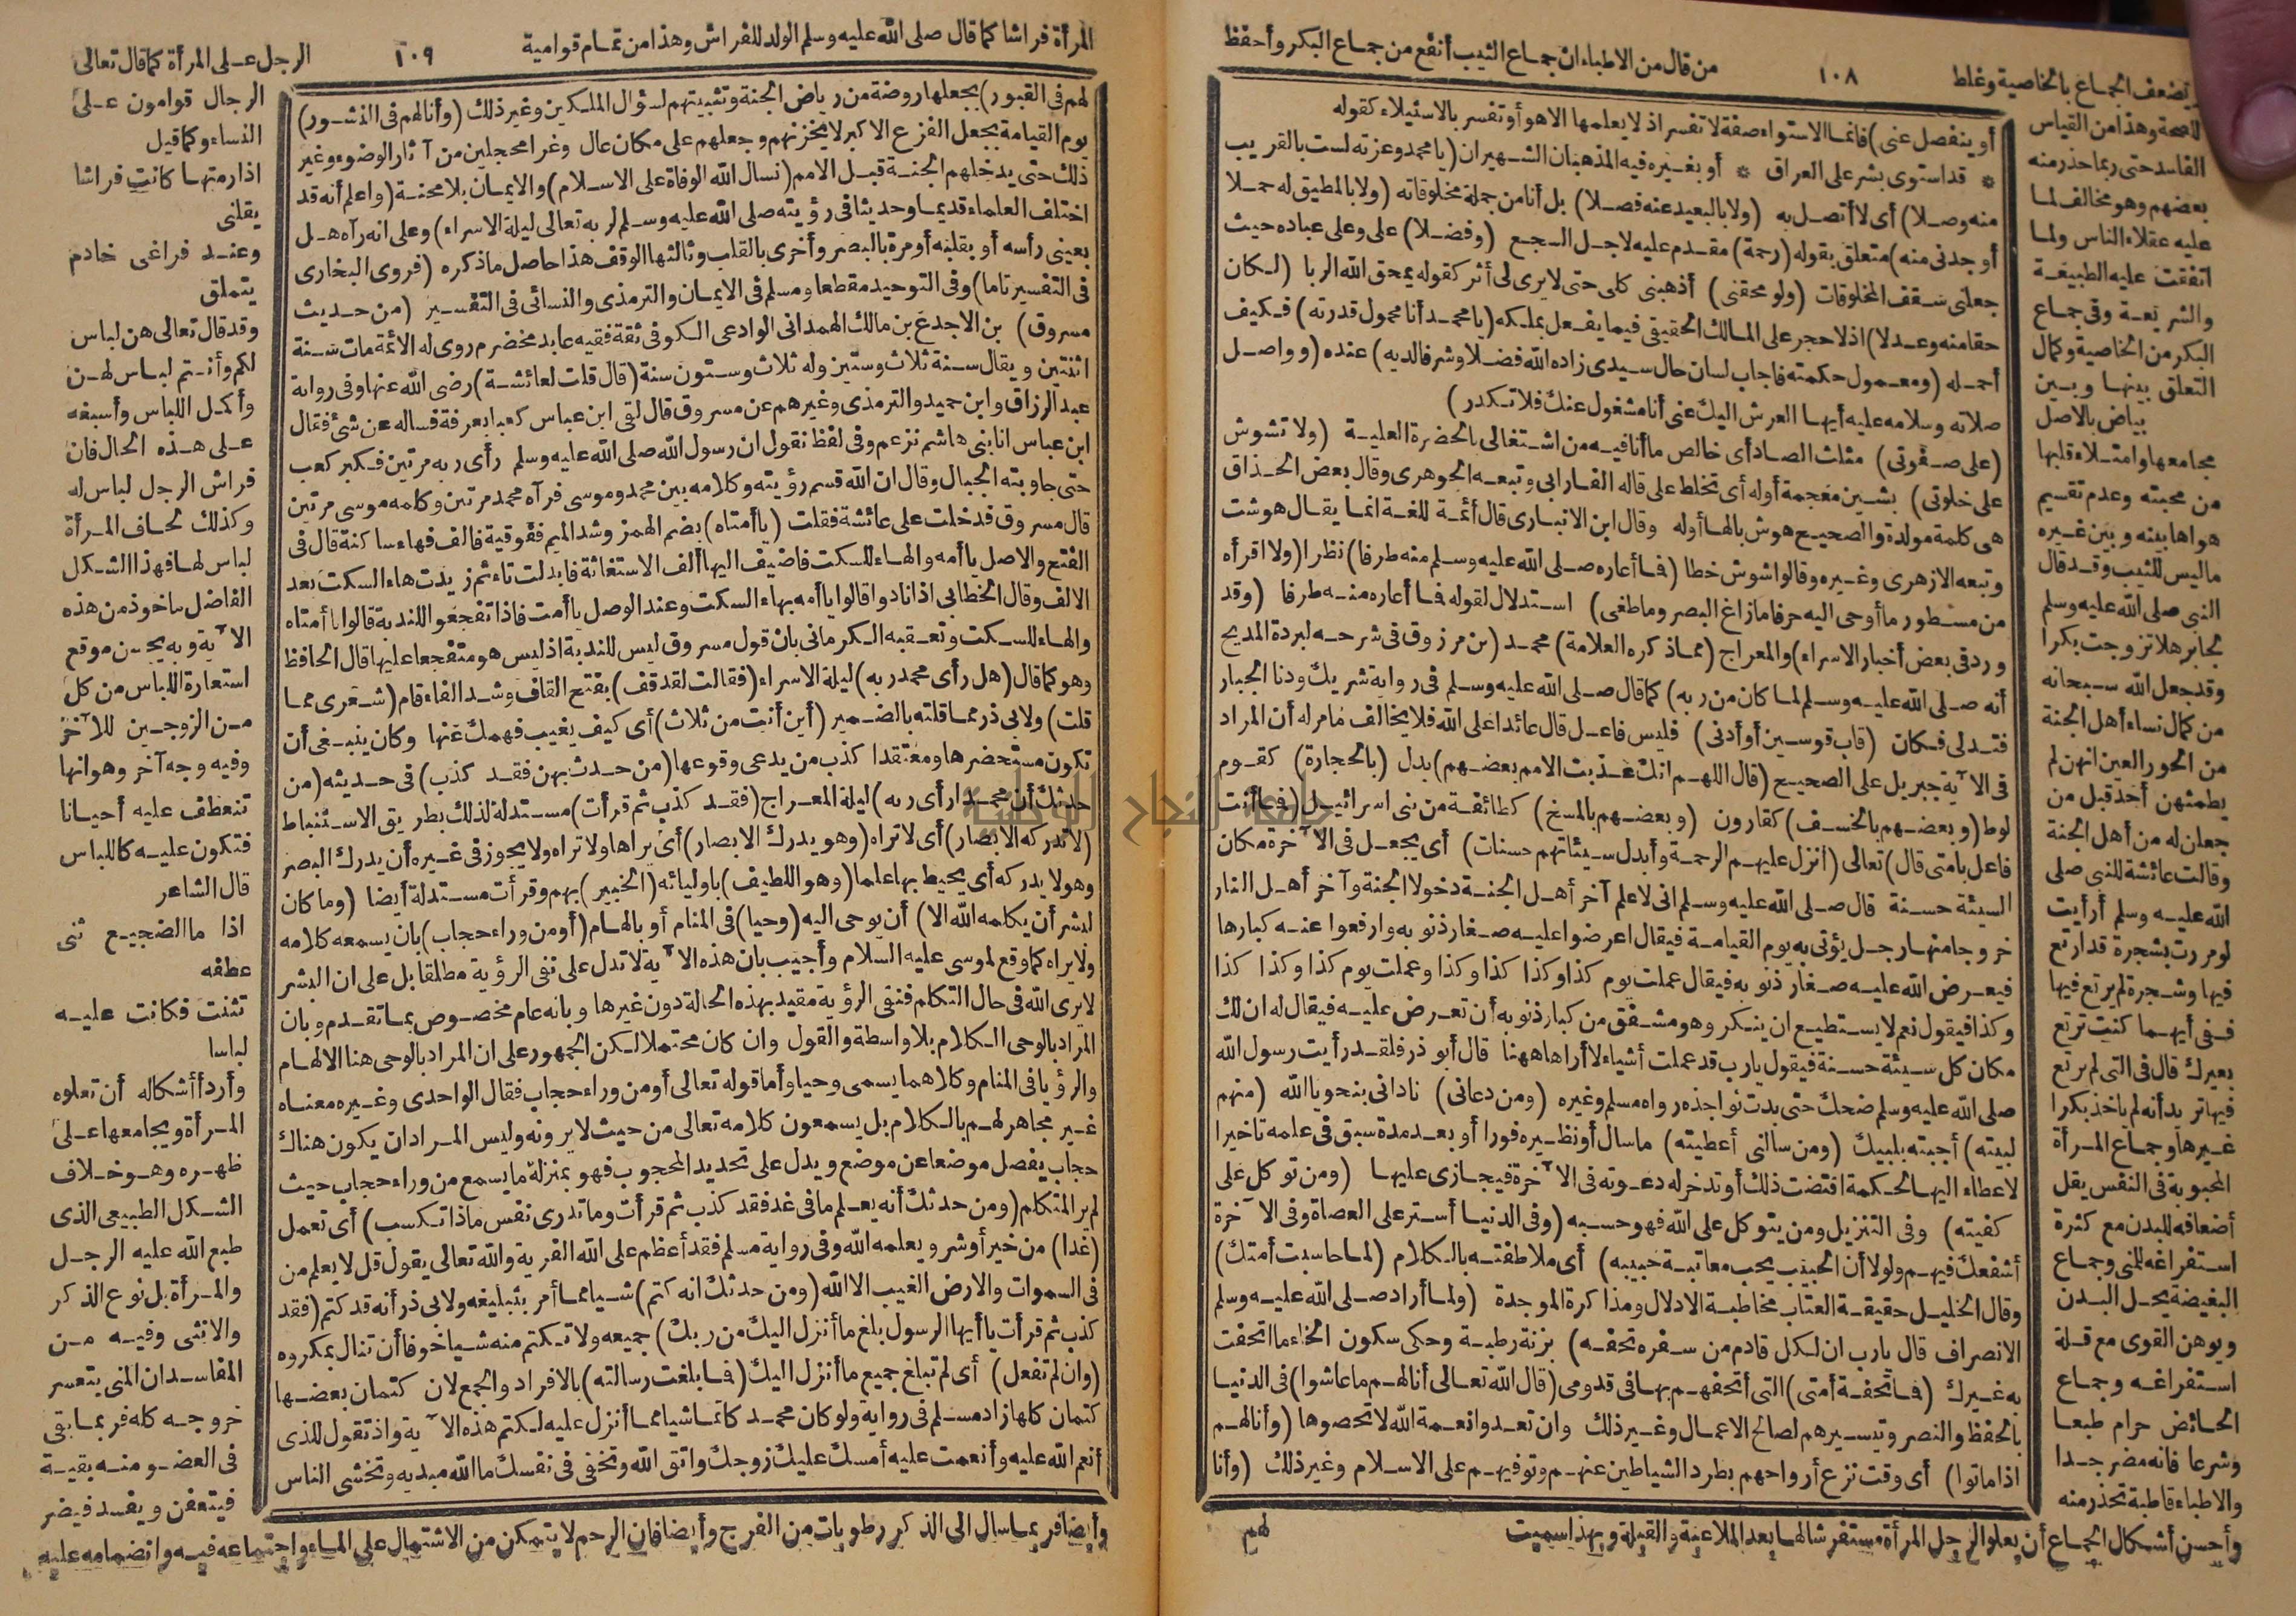 من قال من الاطباء ان جماع الثيب أنفع من جماع البكر وأحفظ
١٠٨
تضعف الجماع بالخاصية وغلط
للصحة وهذا من القياس
الفاسد حتى ربما حذر منه
بعضهم وهو مخالف لما
عليه عقلاء الناس ولما
اتفقت عليه الطبيعة
والشريعة وفى جماع
البكر من الخاصية وكمال
التعلق بينها وبين
بياض بالاصل
مجامعها وامتلاء قلبها
من محبته وعدم تقسيم
هواها بينه وبين غيره
ما ليس للثيب وقد قال
النبى صلى الله عليه وسلم
لجابر هلا تزوجت بكرا
وقد جعل الله سبحانه
من كمال نساء أهل الجنة
من الحور العين انهن لم
يطمثهن أحد قبل من
جعلن له من أهل الجنة
وقالت عائشة للنبى صلى
الله عليه وسلم أرأيت
لو مررت بشجرة قد ارتع
فيها وشجرة لم يرتع فيها
ففى أيهما كنت ترتع
بعيرك قال فى التى لم يرتع
فيها تريد أنه لم يأخذ بكرا
غيرها وجماع المرأة
المحبوبة فى النفس يقل
أضعافه للبدن مع كثرة
استفراغه للمنى وجماع
البغيضة يحل البدن
ويوهن القوى مع قلة
استفراغه وجماع
الحائض حرام طبعا
وشرعا فانه مضر جدا
والاطباء قاطبة تحذر منه
وأحسن أشكال الجماع أن يعلو الرجل المرأة مستفرشا لها بعد الملاعبة والقبلة وبهذا سميت
أو ينفصل عنى) فانما الاستواء صفة لا تفسر اذ لا يعلمها الا هو أو تفسر بالاستيلاء كقوله
* قد استوى بشر على العراق * أو بغيره فيه المذهبان الشهيران (يا محمد وعزته لست بالقريب
منه وصلا) أى لا أتصل به (ولا بالبعيد عنه فصلا) بل أنا من جملة مخلوقاته (ولا بالمطيق له حملا
أوجدنى منه) متعلق بقوله (رحمة) مقدم عليه لاجل السجع (وفضلا) على وعلى عباده حيث
جعلنى سقف المخلوقات (ولو محقنى) أذهبنى كلى حتى لا يرى لى أثر كقوله يمحق الله الربا (لكان
حقا منه وعدلا) اذ لا حجر على المالك الحقيقى فيما يفعل بملكه (يا محمد أنا محمول قدرته) فكيف
أحمله (ومعمول حكمته فاجاب لسان حال سيدى زاده الله فضلا وشرفا لديه) عنده (وواصل
صلاته وسلامه عليه أيها العرش اليك عنى أنا مشغول عنك فلا تكدر)
(على صفوتى) مثلث الصاد أى خالص ما أنا فيه من اشتغالى بالحضرة العلية (ولا تشوش
على خلوتى) بشين معجمة أوله أى تخلط على قاله الفارابى وتبعه الجوهرى وقال بعض الحذاق
هى كلمة مولدة والصحيح هوش بالهاء أوله وقال ابن الانبارى قال أئمة للغة انما يقال هوشت
وتبعه الازهرى وغيره وقالوا شوش خطا (فما أعاره صلى الله عليه وسلم منه طرفا) نظرا (ولا اقرأه
من مسطور ما أوحى اليه حرفا ما زاغ البصر وما طغى) استدلال لقوله فما أعاره منه طرفا (وقد
ورد فى بعض أخبار الاسراء) والمعراج (مما ذكره العلامة) محمد (بن مرزوق فى شرحه لبردة المديح
أنه صلى الله عليه وسلم لما كان من ربه) كما قال صلى الله عليه وسلم فى رواية شريك ودنا الجبار
فتدلى فكان (قاب قوسين أو أدنى) فليس فاعل قال عائدا على الله فلا يخالف ما مر له أن المراد
فى الآية جبريل على الصحيح (قال اللهم انك عذبت الامم بعضهم) بدل (بالحجارة) كقوم
لوط (وبعضهم بالخسف) كقارون (وبعضهم بالمسخ) كطائفة من بنى اسرائيل (فما أنت
فاعل بامتى قال) تعالى (أنزل عليهم الرحمة وأبدل سيئاتهم حسنات) أى يجعل فى الآخرة مكان
السيئة حسنة قال صلى الله عليه وسلم انى لاعلم آخر أهل الجنة دخولا الجنة وآخر أهل النار
خروجا منها رجل يؤتى به يوم القيامة فيقال اعرضوا عليه صغار ذنوبه وارفعوا عنه كبارها
فيعرض الله عليه صغار ذنوبه فيقال عملت يوم كذا وكذا كذا وكذا وعملت يوم كذا وكذا كذا
وكذا فيقول نعم لا يستطيع ان ينكر وهو مشفق من كبار ذنوبه أن تعرض عليه فيقال له ان لك
مكان كل سيئة حسنة فيقول يارب قد عملت أشياء لا أراها ههنا قال أبو ذر فلقد رأيت رسول الله
صلى الله عليه وسلم ضحك حتى بدت نواجذه رواه مسلم وغيره (ومن دعانى) نادانى بنحو يا الله (منهم
لبيته) أجبته بلبيك (ومن سالنى أعطيته) ما سال أو نظيره فورا أو بعد مدة سبق فى علمه تاخيرا
لاعطاء اليها الحكمة اقتضت ذلك أو تدخر له دعوته فى الآخرة فيجازى عليها (ومن توكل على
كفيته) وفى التنزيل ومن يتوكل على الله فهو حسبه (وفى الدنيا أستر على العصاة وفى الآخرة
أشفعك فيهم ولولا أن الحبيب يحب معاتبة حبيبه) أى ملاطفته بالكلام (لما حاسبت أمتك)
وقال الخليل حقيقة العتاب مخاطبة الادلال ومذاكرة الموجدة (ولما أراد صلى الله عليه وسلم
الانصراف قال يارب ان لكل قادم من سفره تحفه) بزنة رطبة وحكى سكون الخاء ما اتحفت
به غيرك (فما تحفة أمتى) التى أتحفهم بها فى قدومى (قال الله تعالى أنا لهم ما عاشوا) فى الدنيا
بالحفظ والنصر وتيسيرهم لصالح الاعمال وغير ذلك وان تعدوا نعمة الله لا تحصوها (وأنا لهم
اذا ماتوا) أى وقت نزع أرواحهم بطرد الشياطين عنهم وتوفيهم على الاسلام وغير ذلك (وأنا
لهم
المرأة فراشا كما قال صلى الله عليه وسلم الولد للفراش وهذا من تمام قوامية
١٠٩
الرجل على المرأة كما قال تعالى
لهم فى القبور) بجعلها روضة من رياض الجنة وتثبيتهم لسؤال الملكين وغير ذلك (وأنا لهم فى النشور)
يوم القيامة بجعل الفزع الاكبر لا يحزنهم وجعلهم على مكان عال وغرا محجلين من آثار الوضوء وغير
ذلك حتى يدخلهم الجنة قبل الامم (نسال الله الوفاة على الاسلام) والايمان بلا محنة (واعلم أنه قد
اختلف العلماء قديما وحديثا فى رؤيته صلى الله عليه وسلم لربه تعالى ليلة الاسراء) وعلى انه رآه هل
بعينى رأسه أو بقلبه أو مرة بالبصر وأخرى بالقلب وثالثها الوقف هذا حاصل ما ذكره (فروى البخارى
فى التفسير تاما) وفى التوحيد مقطعا ومسلم فى الايمان والترمذى والنسائى فى التفسير (من حديث
مسروق) بن الاجدع بن مالك الهمدانى الوادعى الكوفى ثقة فقيه عابد مخضرم روى له الائمة مات سنة
اثنتين ويقال سنة ثلاث وستين وله ثلاث وستون سنة (قال قلت لعائشة) رضى الله عنها وفى رواية
عبد الرزاق وابن حميد والترمذى وغيرهم عن مسروق قال لقى ابن عباس كعبا بعرفة فساله عن شئ فقال
ابن عباس انا بنى هاشم نزعم وفى لفظ نقول ان رسول الله صلى الله عليه وسلم رأى ربه مرتين فكبر كعب
حتى جاوبته الجبال وقال ان الله قسم رؤيته وكلامه بين محمد وموسى فرآه محمد مرتين وكلمه موسى مرتين
قال مسروق فدخلت على عائشة فقلت (يا أمتاه) بضم الهمز وشد الميم ففوقية فالف فهاء ساكنة قال فى
الفتح والاصل يا أمه والهاء للسكت فاضيف اليها ألف الاستغاثة فابدلت تاء ثم زيدت هاء السكت بعد
الالف وقال الخطابى اذا نادوا قالوا يا أمه بهاء السكت وعند الوصل يا أمت فاذا تفجعوا للندبة قالوا يا أمتاه
والهاء للسكت وتعقبه الكرمانى بان قول مسروق ليس للندبة اذ ليس هو متفجعا عليها قال الحافظ
وهو كما قال (هل رأى محمد ربه) ليلة الاسراء (فقالت لقد قف) بفتح القاف وشد الفاء قام (شعرى مما
قلت) ولابى ذر مما قلته بالضمير (أين أنت من ثلاث) أى كيف يغيب فهمك عنها وكان ينبغى أن
تكون مستحضرها ومعتقدا كذب من يدعى وقوعها (من حدث بهن فقد كذب) فى حديثه (من
حدثك أن محمدا رأى ربه) ليلة المعراج (فقد كذب ثم قرأت) مستدلة لذلك بطريق الاستنباط
(لا تدركه الابصار) أى لا تراه (وهو يدرك الابصار) أى يراها ولا تراه ولا يجوز فى غيره أن يدرك البصر
وهو لا يدركه أى يحيط بها علما (وهو اللطيف) باوليائه (الخبير) بهم وقرأت مستدلة أيضا (وما كان
لبشر أن يكلمه الله الا) أن يوحى اليه (وحيا) فى المنام أو بالهام (أو من وراء حجاب) بان يسمعه كلامه
ولا يراه كما وقع لموسى عليه السلام وأجيب بان هذه الآية لا تدل على نفى الرؤية مطلقا بل على ان البشر
لا يرى الله فى حال التكلم فنفى الرؤية مقيد بهذه الحالة دون غيرها وبانه عام مخصوص بما تقدم وبان
المراد بالوحى الكلام بلا واسطة والقول وان كان محتملا لكن الجمهور على ان المراد بالوحى هنا الالهام
والرؤيا فى المنام وكلاهما يسمى وحيا وأما قوله تعالى أو من وراء حجاب فقال الواحدى وغيره معناه
غير مجاهر لهم بالكلام بل يسمعون كلامه تعالى من حيث لا يرونه وليس المراد ان يكون هناك
حجاب يفصل موضعا عن موضع ويدل على تحديد المحجوب فهو بمنزلة ما يسمع من وراء حجاب حيث
لم ير المتكلم (ومن حدثك أنه يعلم ما فى غد فقد كذب ثم قرأت وما تدرى نفس ماذا تكسب) أى تعمل
(غدا) من خير أو شر ويعلمه الله وفى رواية مسلم فقد أعظم على الله الفرية والله تعالى يقول قل لا يعلم من
فى السموات والارض الغيب الا الله (ومن حدثك انه كتم) شيا مما أمر بتبليغه ولابى ذر أنه قد كتم (فقد
كذب ثم قرأت يا أيها الرسول بلغ ما أنزل اليك من ربك) جميعه ولا تكتم منه شيا خوفا أن تنال بمكروه
(وان لم تفعل) أى لم تبلغ جميع ما أنزل اليك (فما بلغت رسالته) بالافراد والجمع لان كتمان بعضها
كتمان كلها زاد مسلم فى رواية ولو كان محمد كاتما شيا مما أنزل عليه لكتم هذه الآية واذ تقول للذى
أنعم الله عليه وأنعمت عليه أمسك عليك زوجك واتق الله وتخفى فى نفسك ما الله مبديه وتخشى الناس
الرجال قوامون على
النساء وكما قيل
اذا رمتها كانت فراشا
يقلنى
وعند فراغى خادم
يتملق
وقد قال تعالى هن لباس
لكم وأنتم لباس لهن
وأكمل اللباس وأسبغه
على هذه الحال فان
فراش الرجل لباس له
وكذلك لحاف المرأة
لباس لها فهذا الشكل
الفاضل ماخوذ من هذه
الآية وبه يحسن موقع
استعارة اللباس من كل
من الزوجين للآخر
وفيه وجه آخر وهو انها
تنعطف عليه أحيانا
فتكون عليه كاللباس
قال الشاعر
اذا ما الضجيع ثنى
عطفه
تثنت فكانت عليه
لباسا
وأردأ أشكاله أن تعلوه
المرأة ويجامعها على
ظهره وهو خلاف
الشكل الطبيعى الذى
طبع الله عليه الرجل
والمرأة بل نوع الذكر
والانثى وفيه من
المفاسد ان المنى يتعسر
خروجه كله فربما بقى
فى العضو منه بقية
فيتعفن ويفسد فيضر
وأيضا فربما سال الى الذكر رطوبات من الفرج وأيضا فان الرحم لا يتمكن من الاشتمال على الماء واجتماعه فيه وانضمامه عليه
جامعة النجاح الوطنية